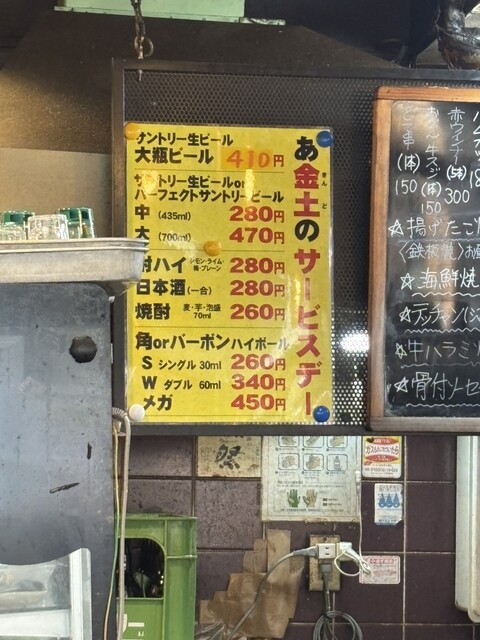 あ金土のサービスデー
きん
ど
サントリー生ビール
大瓶ビール 410円
サントリー生ビールor
パーフェクトサントリービール
中 (435ml) 280円
大 (700ml) 470円
酎ハイ レモン・ライム・梅・プレーン 280円
日本酒(一合) 280円
焼酎 麦・芋・泡盛 70ml 260円
角orバーボンハイボール
S シングル 30ml 260円
W ダブル 60ml 340円
メガ 450円
赤ウインナー
(5本)
300
牛スジ
(1本)
150
(1本)
150
☆揚げたこ
〈鉄板焼〉お
☆海鮮焼
☆牛ハラミ
☆骨付ソーセ
祭